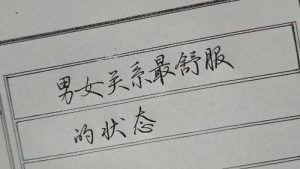 男女关系最舒服
的状态